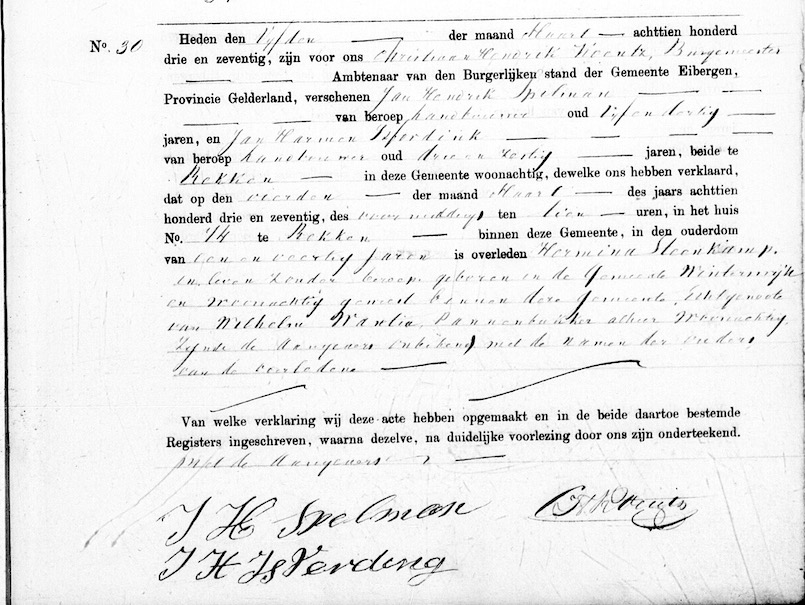 No. 30 Heden den Vyfden der maand Maart achttien honderd
drie en zeventig, zijn voor ons Christiaan Hendrik Burgemeester
Ambtenaar van den Burgerlijken stand der Gemeente Eibergen,
Provincie Gelderland, verschenen Jan Hendrik Spelman
van beroep Landbouwer oud Vyfendertig
jaren, en Jan Harmen
van beroep Landbouwer oud drie en zestig jaren, beide te
Rekken in deze Gemeente woonachtig, dewelke ons hebben verklaard,
dat op den vierden der maand Maart des jaars achttien
honderd drie en zeventig, des voormiddags ten tien uren, in het huis
No. 74 te Rekken binnen deze Gemeente, in den ouderdom
van een en veertig jaren is overleden Hermina Steenkamp,
in leven zonder beroep geboren in de Gemeente Winterwyk
en woonachtig geweest binnen deze gemeente, Echtgenoote
van Wilhelm Pannenbakker alhier woonachtig,
Zynde de Aangevers onbekend met de namen der ouders
van de overledene
Van welke verklaring wij deze acte hebben opgemaakt en in de beide daartoe bestemde
Registers ingeschreven, waarna dezelve, na duidelijke voorlezing door ons zijn onderteekend.
met de Aangevers
J H Spelman
J H